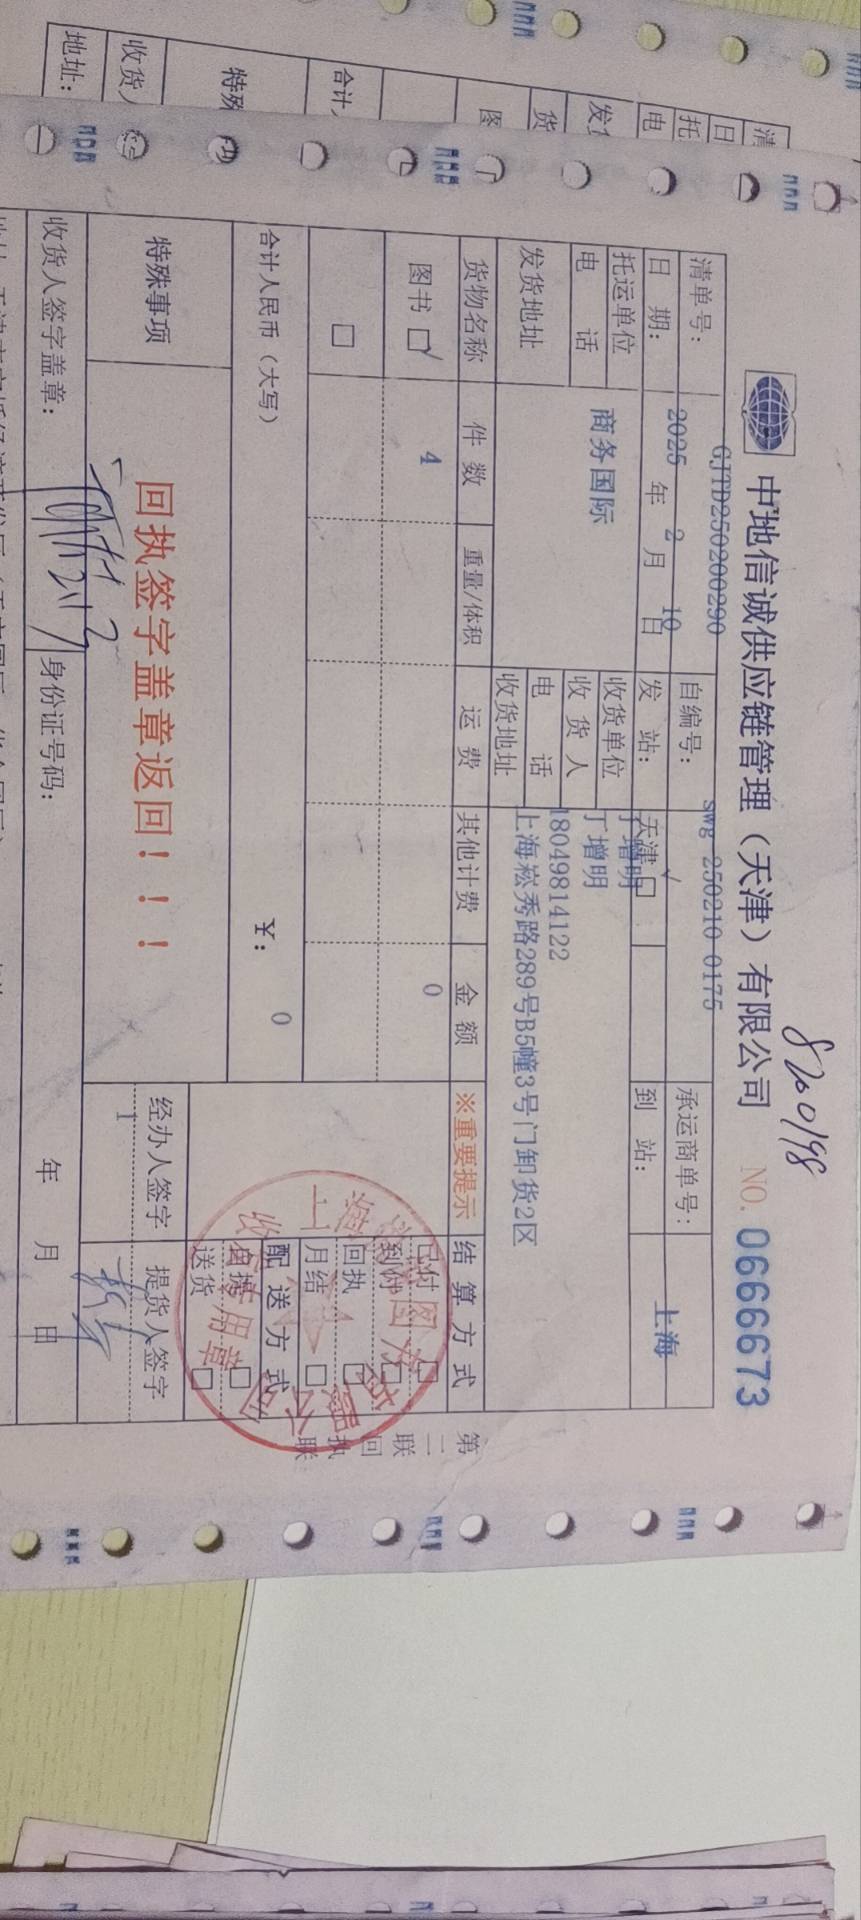 8200198
中地信诚供应链管理（天津）有限公司 NO. 0666673
清单号： GJTD250200290 自编号： swg 250210 0175 承运商单号：
日 期： 2025 年 2 月 10 日 发 站： 天津 □ √ 到 站： 上海
托运单位 商务国际 收货单位 丁增明
电 话 收 货 人 丁增明
发货地址 电 话 18049814122
收货地址 上海崧秀路289号B5幢3号门卸货2区
货物名称 件 数 重量/体积 运 费 其他计费 金 额 ※重要提示 结 算 方 式
图书 □√ 4 0 已付 □
到付 □
□ 回执 □
月结 □
合计人民币（大写） ￥： 0 配 送 方 式
自提 □
送货 □
特殊事项 回执签字盖章返回！！！ 经办人签字 提货人签字
1
收货人签字盖章： 身份证号码： 年 月 日
第二联 回执联
清
日
托
电
发
货
图
合计
特殊
收货人
地址：